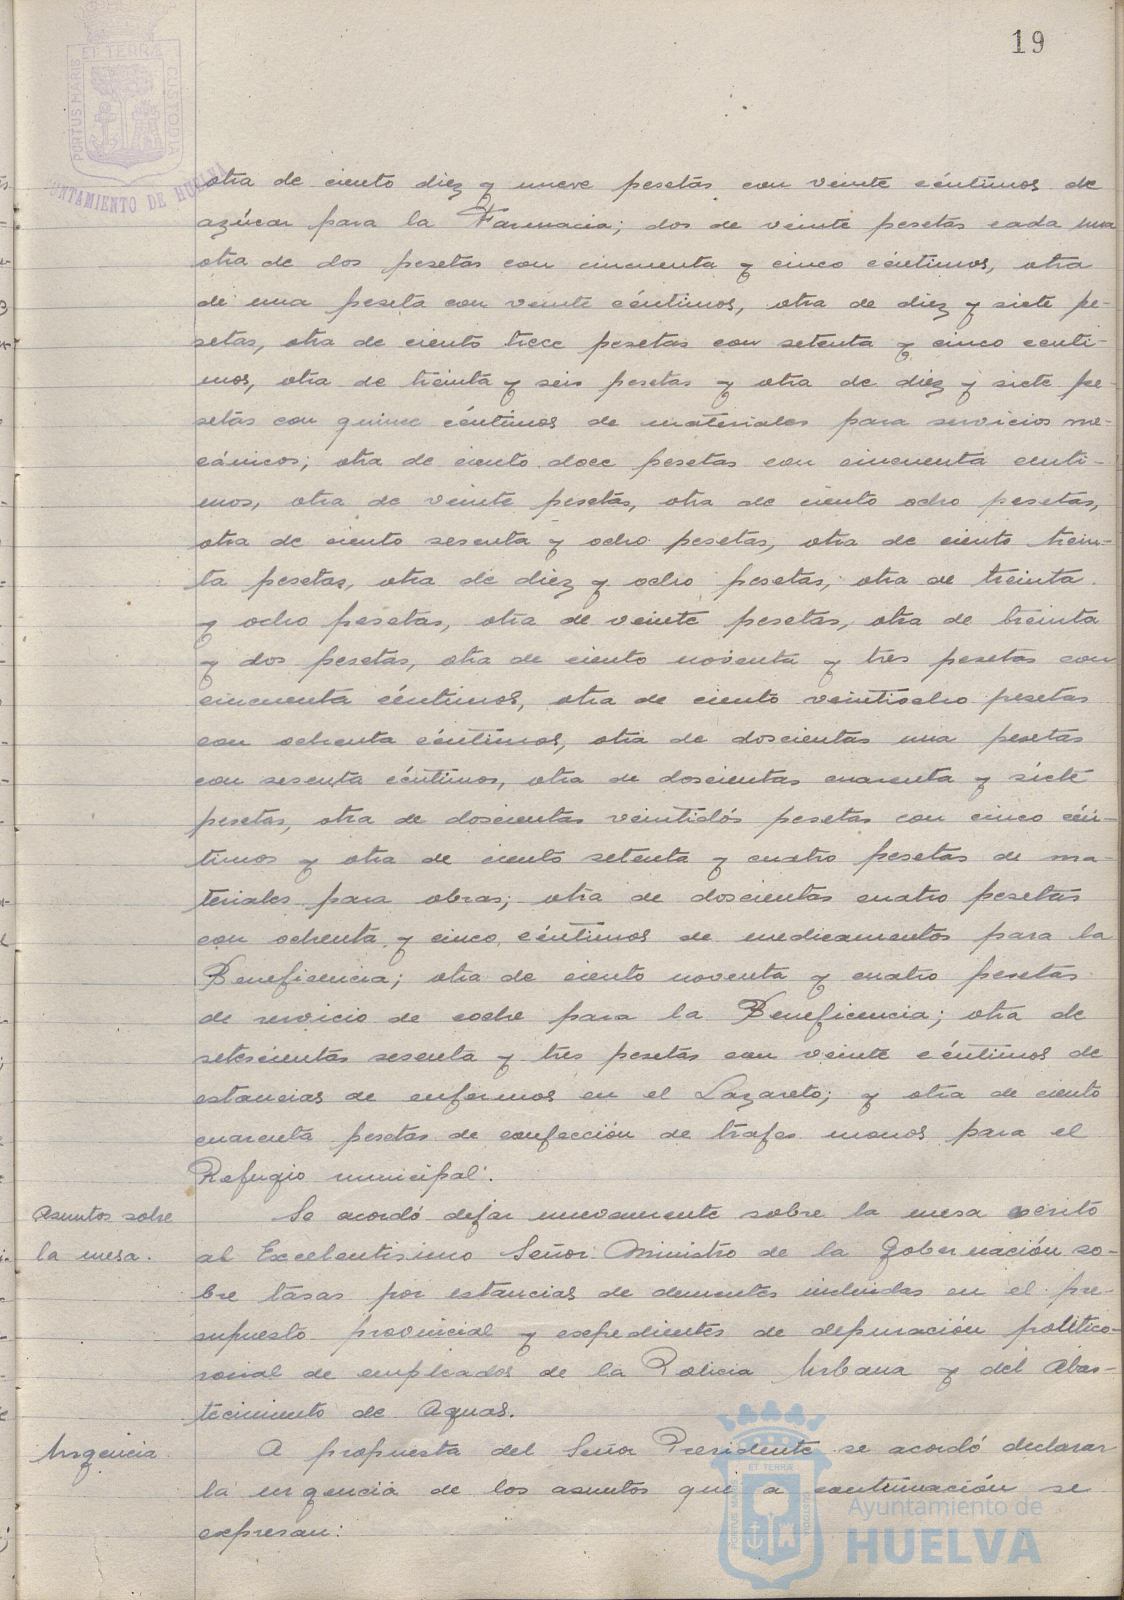 19
PORTUS MARIS ET TERRÆ CUSTODIA
AYUNTAMIENTO DE HUELVA
otra de ciento diez y nueve pesetas con veinte céntimos de
azúcar para la Farmacia; dos de veinte pesetas cada una
otra de dos pesetas con cincuenta y cinco céntimos, otra
de una peseta con veinte céntimos, otra de diez y siete pe-
setas, otra de ciento trece pesetas con setenta y cinco centi-
mos, otra de treinta y seis pesetas y otra de diez y siete pe-
setas con quince céntimos de materiales para servicios me-
cánicos; otra de ciento doce pesetas con cincuenta centi-
mos, otra de veinte pesetas, otra de ciento ocho pesetas,
otra de ciento sesenta y ocho pesetas, otra de ciento trein-
ta pesetas, otra de diez y ocho pesetas, otra de treinta
y ocho pesetas, otra de veinte pesetas, otra de treinta
y dos pesetas, otra de ciento noventa y tres pesetas con
cincuenta céntimos, otra de ciento veintiocho pesetas
con ochenta céntimos, otra de doscientas una pesetas
con sesenta céntimos, otra de doscientas cuarenta y siete
pesetas, otra de doscientas veintidós pesetas con cinco cén-
timos y otra de ciento setenta y cuatro pesetas de ma-
teriales para obras; otra de doscientas cuatro pesetas
con ochenta y cinco céntimos de medicamentos para la
Beneficencia; otra de ciento noventa y cuatro pesetas
de servicio de coche para la Beneficencia; otra de
setecientas sesenta y tres pesetas con veinte céntimos de
estancias de enfermos en el Lazareto; y otra de ciento
cuarenta pesetas de confección de trajes monos para el
Refugio municipal.
Asuntos sobre
la mesa.
Se acordó dejar nuevamente sobre la mesa escrito
al Excelentisimo Señor Ministro de la Gobernación so-
bre tasas por estancias de dementes incluidas en el pre-
supuesto provincial y expedientes de depuración politico-
social de empleados de la Policia Urbana y del Abas-
tecimiento de Aguas.
Urgencia.
A propuesta del Señor Presidente se acordó declarar
la urgencia de los asuntos que a continuación se
expresan:
PORTUS MARIS ET TERRÆ CUSTODIA
Ayuntamiento de
HUELVA